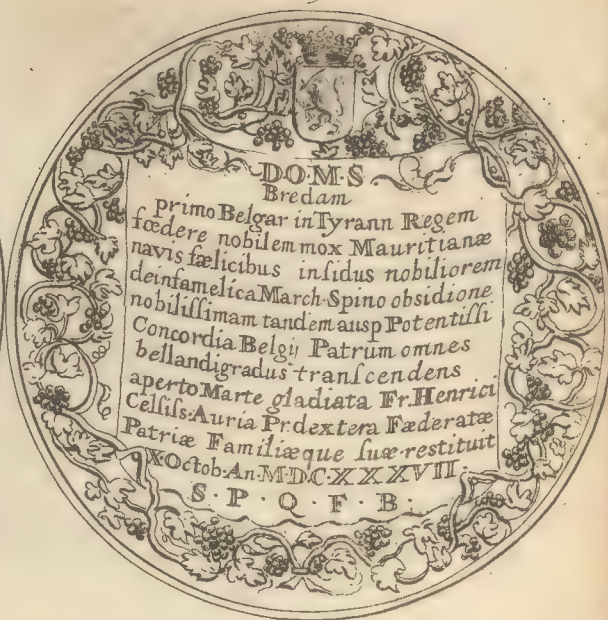 D·O·M·S·
Bredam
primo Belgar in Tyrann Regem
fœdere nobilem mox Mauritianæ
navis fælicibus insidus nobiliorem
deinfamelica March·Spino obsidione
nobilissimam tandem ausp Potentissi
Concordia Belgij Patrum omnes
bellandi gradus transcendens
aperto Marte gladiata Fr. Henrici
Celsiss·Auria Pr. dextera Fæderatæ
Patriæ Familiæque suæ·restituit
X Octob·An·MDC·XXXVII·
S·P·Q·F·B·